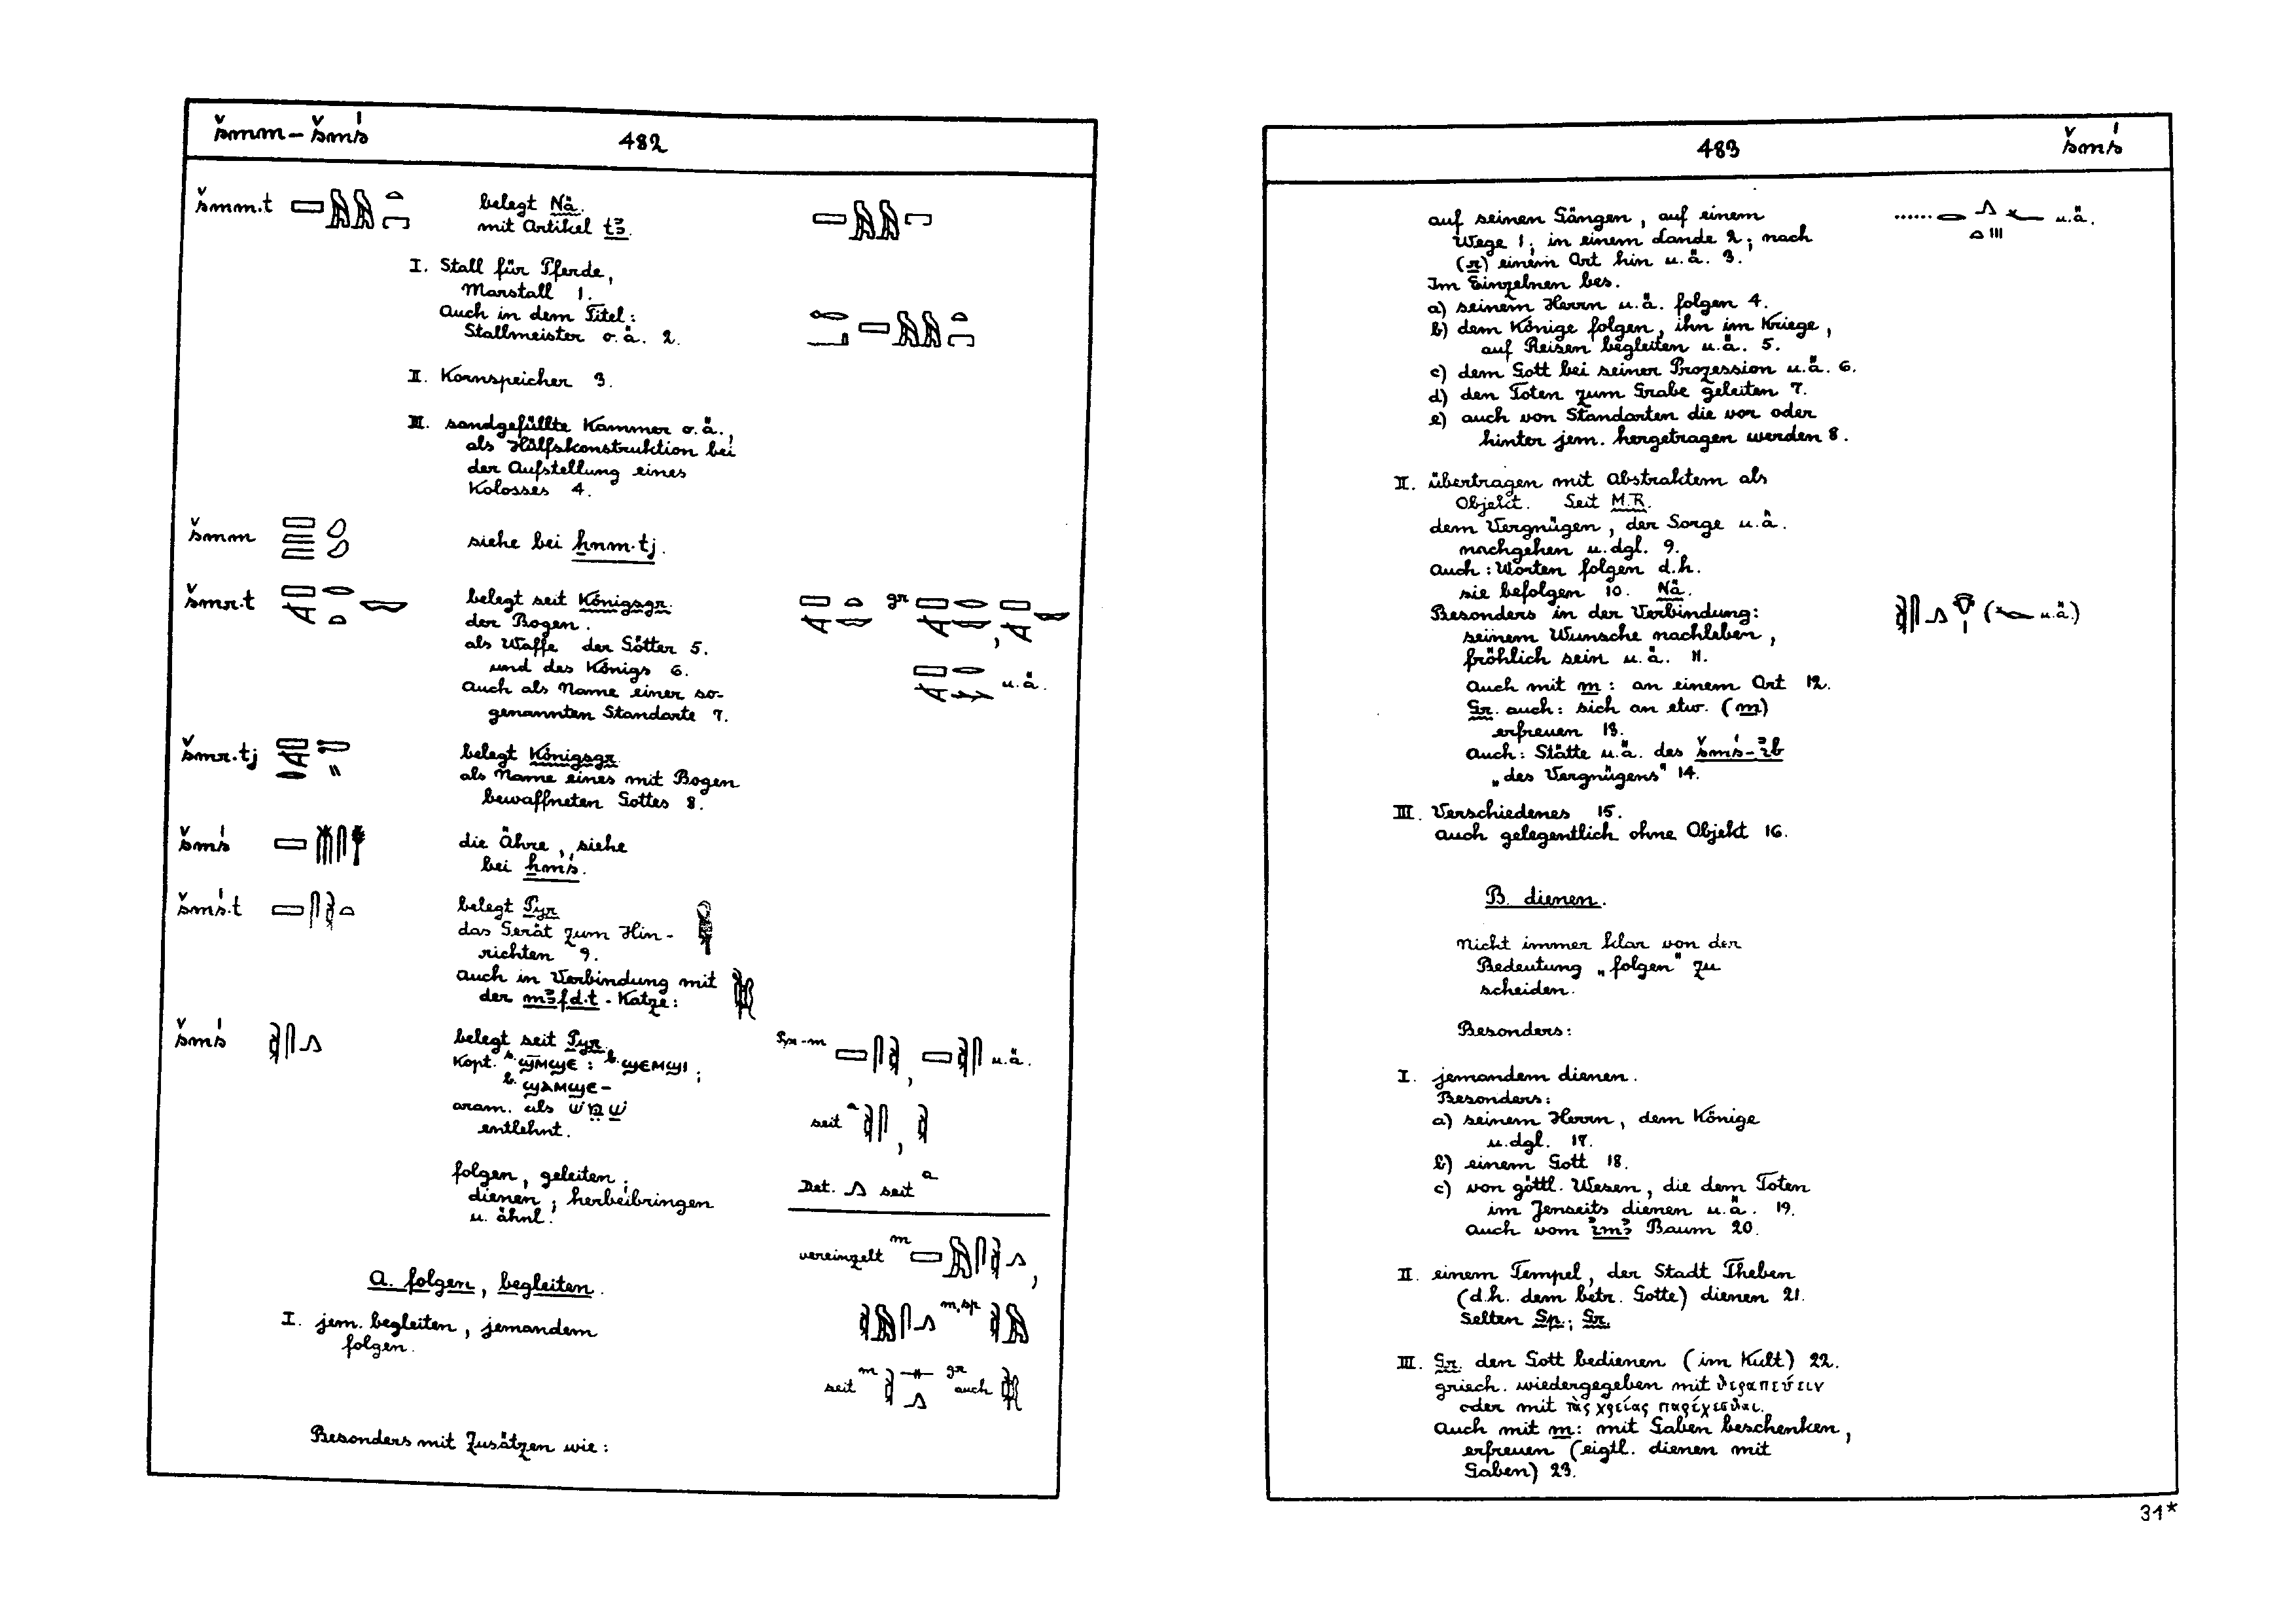 šmm – šmś
482
šmm.t
belegt Nä.
mit Artikel tꜣ.
I. Stall für Pferde,
Marstall 1.
Auch in dem Titel:
Stallmeister o. ä. 2.
II. Kornspeicher 3.
III. sandgefüllte Kammer o. ä.,
als Hülfskonstruktion bei
der Aufstellung eines
Kolosses 4.
šmm
siehe bei ẖnm.tj.
šmr.t
belegt seit Königsgr.
gr
der Bogen.
als Waffe der Götter 5.
und des Königs 6.
u. ä.
Auch als Name einer so-
genannten Standarte 7.
šmr.tj
belegt Königsgr.
als Name eines mit Bogen
bewaffneten Gottes 8.
šmś
die Ähre, siehe
bei ẖmś.
šmś.t
belegt Pyr
das Gerät zum Hin-
richten 9.
Auch in Verbindung mit
der mꜣfd.t - Katze:
šmś
belegt seit Pyr.
Pyr-m
u. ä.
Kopt. s. ϣⲙ̄ϣⲉ : b. ϣⲉⲙϣⲓ ;
b. ϣⲁⲙϣⲉ-
aram. als שמש
entlehnt.
seit a
folgen, geleiten;
dienen; herbeibringen
u. ähnl.
Det. seit a
vereinzelt m
A. folgen, begleiten.
m, sp
I. jem. begleiten, jemandem
folgen.
seit m
gr auch
Besonders mit Zusätzen wie:
483
šmś
auf seinen Gängen, auf einem
u. ä.
Wege 1; in einem Lande 2; nach
(r) einem Ort hin u. ä. 3.
Im Einzelnen bes.
a) seinem Herrn u. ä. folgen 4.
b) dem Könige folgen, ihn im Kriege,
auf Reisen begleiten u. ä. 5.
c) dem Gott bei seiner Prozession u. ä. 6.
d) den Toten zum Grabe geleiten 7.
e) auch von Standarten die vor oder
hinter jem. hergetragen werden 8.
II. übertragen mit Abstraktem als
Objekt. Seit M.R.
dem Vergnügen, der Sorge u. ä.
nachgehen u. dgl. 9.
Auch: Worten folgen d. h.
sie befolgen 10. Nä.
Besonders in der Verbindung:
(u. ä.)
seinem Wunsche nachleben,
fröhlich sein u. ä. 11.
Auch mit m: an einem Ort 12.
Gr. auch: sich an etw. (m)
erfreuen 13.
Auch: Stätte u. ä. des šmś-ỉb
„des Vergnügens" 14.
III. Verschiedenes 15.
auch gelegentlich ohne Objekt 16.
B. dienen.
Nicht immer klar von der
Bedeutung „folgen" zu
scheiden.
Besonders:
I. jemandem dienen.
Besonders:
a) seinem Herrn, dem Könige
u. dgl. 17.
b) einem Gott 18.
c) von göttl. Wesen, die dem Toten
im Jenseits dienen u. ä. 19.
Auch vom ỉmꜣ Baum 20.
II. einem Tempel, der Stadt Theben
(d. h. dem betr. Gotte) dienen 21.
Selten Sp.; Gr.
III. Gr. den Gott bedienen (im Kult) 22.
griech. wiedergegeben mit θεραπεύειν
oder mit τὰς χρείας παρέχεσθαι.
Auch mit m: mit Gaben beschenken,
erfreuen (eigtl. dienen mit
Gaben) 23.
31*